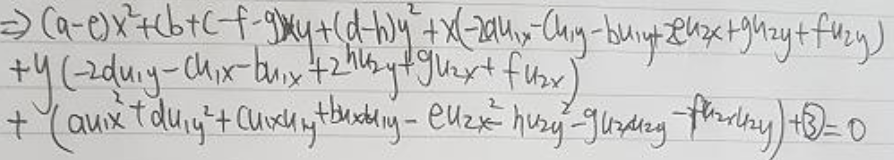 ⇒ (a-e)x²+(b+c-f-g)xy+(d-h)y²+x(-2au₁ₓ-cu₁y-bu₁y+2eu₂ₓ+gu₂y+fu₂y)
+y(-2du₁y-cu₁ₓ-bu₁ₓ+2hu₂y+gu₂ₓ+fu₂ₓ)
+(au₁ₓ²+du₁y²+cu₁ₓu₁y+bu₁ₓu₁y-eu₂ₓ²-hu₂y²-gu₂ₓu₂y-fu₂ₓu₂y)+③=0